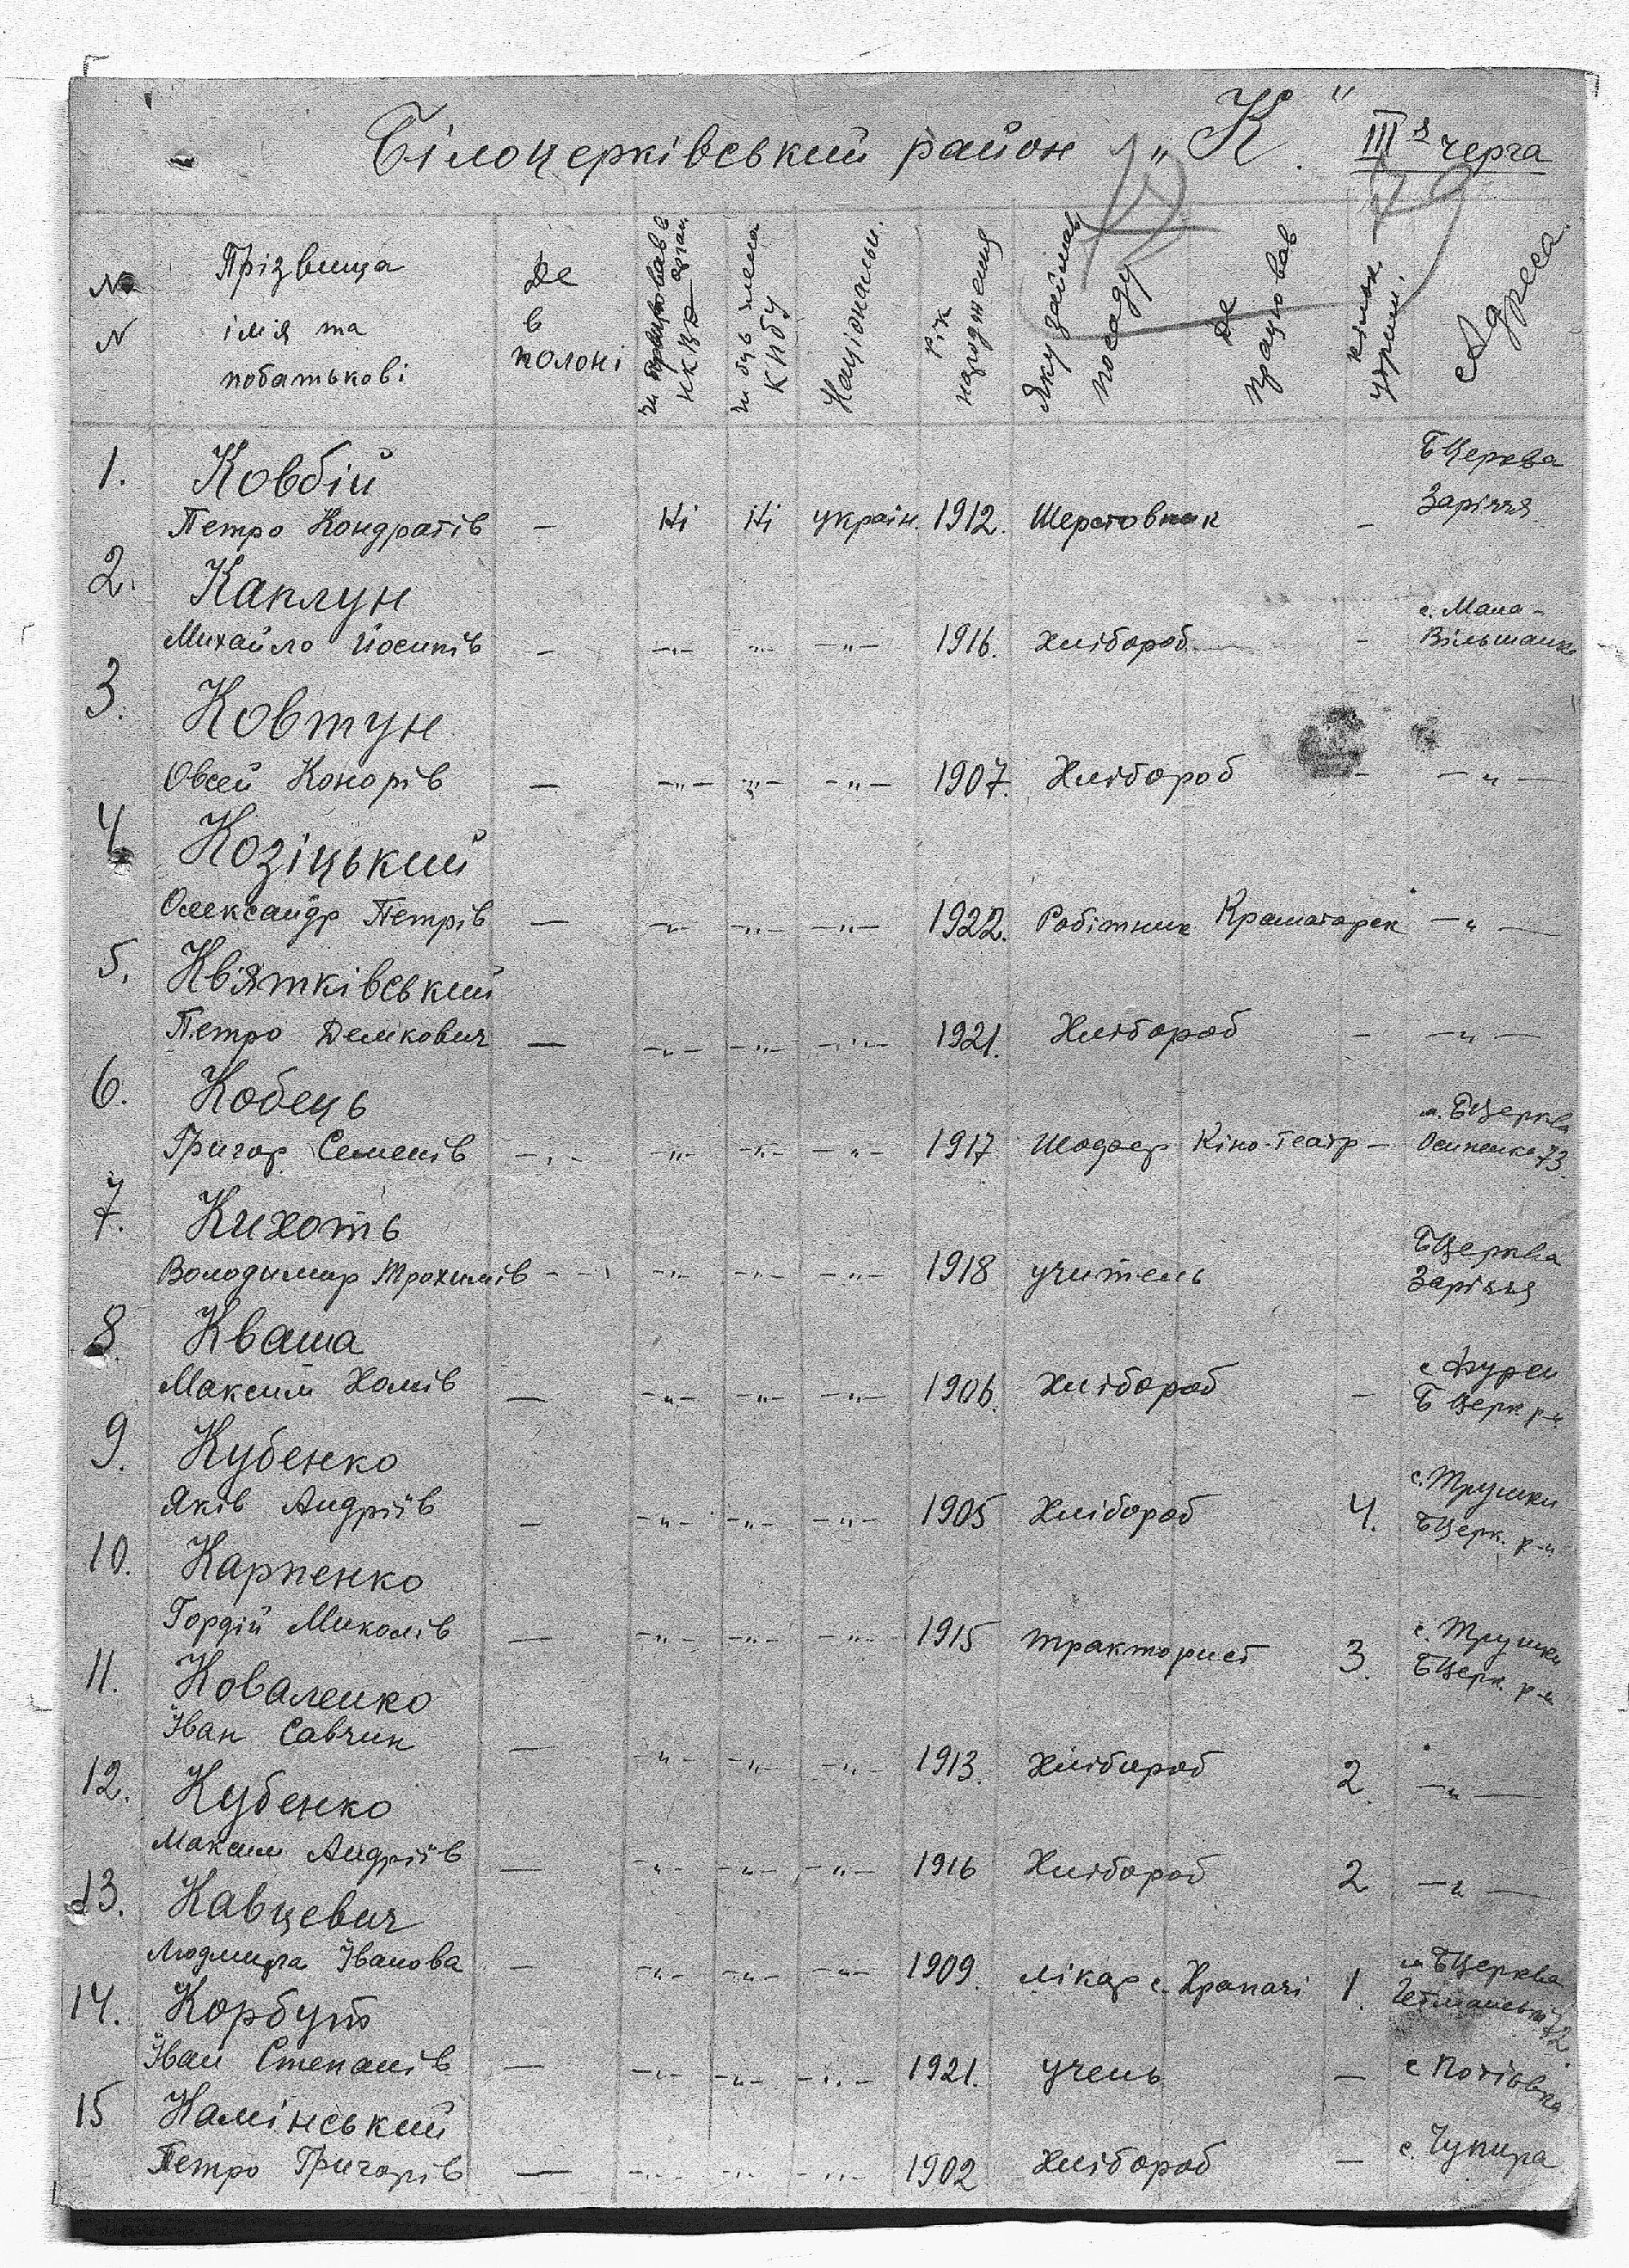 Білоцерківський район „К“ IIIя черга
№ N Прізвища імія та побатькові
Де в полоні
чи працював в орган НКВД
чи був член КПбУ
Національн.
Рік народження
Яку займав посаду
Де працював
кільк. утрим.
Адреса
1. Ковбій БЦерква
Петро Кондратів — Ні Ні україн. 1912. Шерстовник – Заріччя
2. Каплун с. Мала-
Михайло Йосипів – –„– –„– –„– 1916. Хлібороб – Вільшанка
3. Ковтун
Овсей Конорів — –„– –„– –„– 1907. Хлібороб – –„–
4. Козіцький
Олександр Петрів — –„– –„– –„– 1922. Робітник Краматорск –„–
5. Квятківський
Петро Демкович — –„– –„– –„– 1921. Хлібороб – –„–
6. Кобець м. БЦерква
Григор Семенів –„– –„– –„– –„– 1917 Шофер Кіно-театр – Осипенка 73
7. Кихоть БЦерква
Володимир Трохимів – – –„– –„– –„– 1918 учитель Заріччя
8 Кваша с Фурси
Максим Хомів — –„– –„– –„– 1906. Хлібороб – Б Церк р-н
9. Кубенко с. Трушки
Яків Андріїв – –„– –„– –„– 1905 Хлібороб 4. БЦерк. р-н
10. Карпенко с. Трушки
Гордій Миколів — –„– –„– –„– 1915 тракторист 3. БЦерк. р-н
11. Коваленко
Іван Савчин — –„– –„– –„– 1913. Хлібороб 2. –„–
12. Кубенко
Максим Андріїв — –„– –„– –„– 1916 Хлібороб 2 –„–
13. Кавцевич м БЦерква
Людмила Іванова – –„– –„– –„– 1909. лікар с. Храпачі 1. Гетманська 72
14. Корбут
Іван Степанів — –„– –„– –„– 1921. учень – с Потіївка
15 Камінський
Петро Григорів — –„– –„– –„– 1902 Хлібороб – с. Чупира